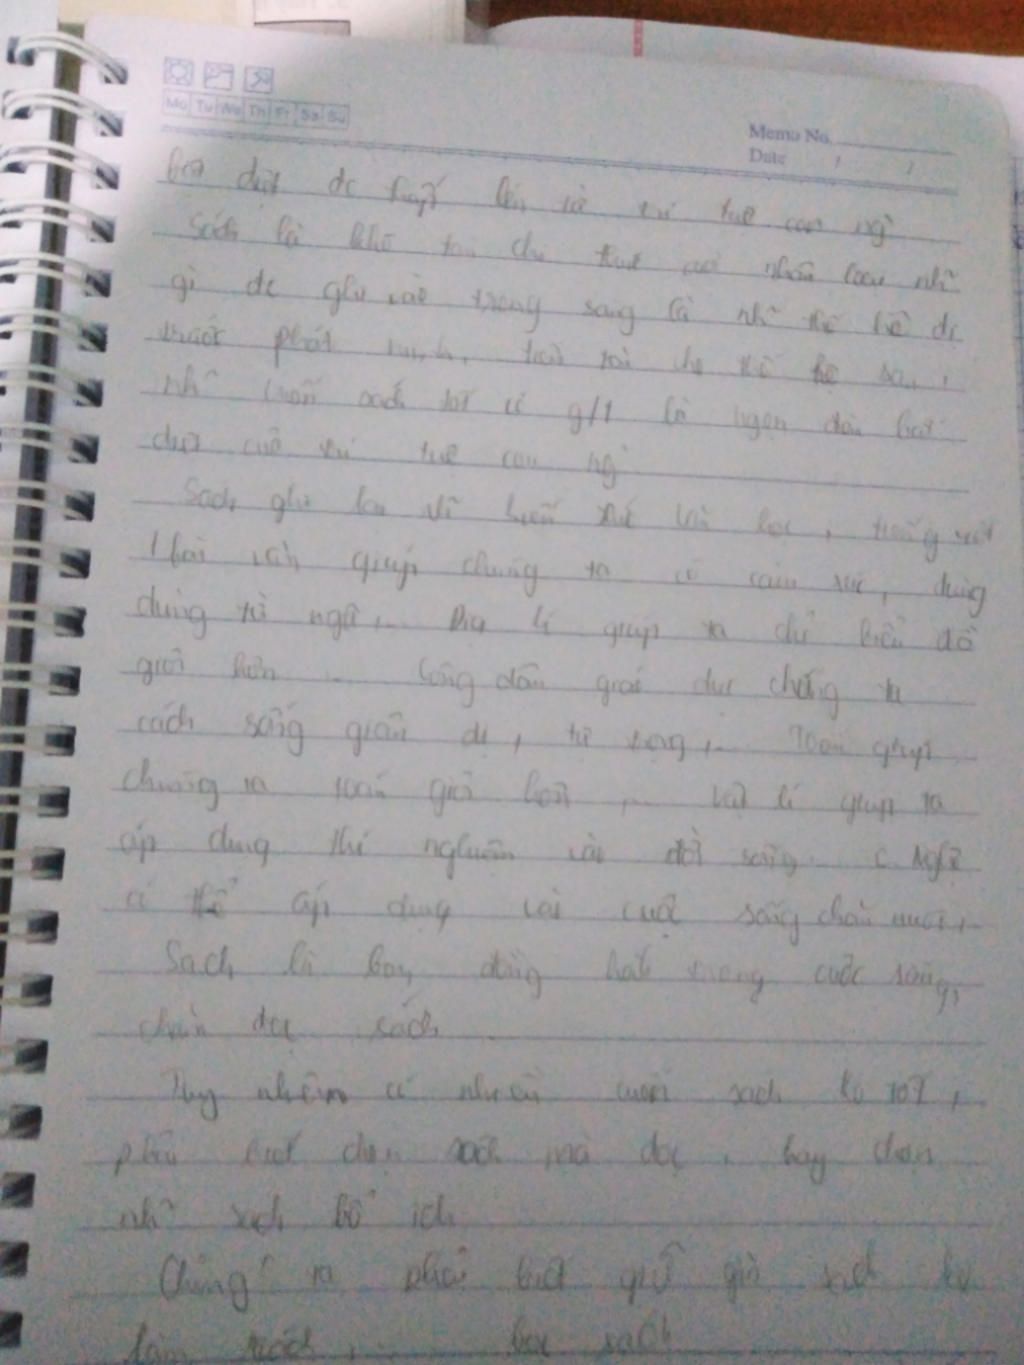 Mo Tu We Th Fr Sa Su
Memo No.
Date / /
đc thắp lên từ trí tuệ con ng`
Sách là kho tàn nhân loại nhữ
gì đc ghi vào trong là nhữ thế hệ đi
trước phát minh, thế hệ sau,
nhữ cuốn sách tốt có g/t là ngọn đèn bất
trí tuệ con ng`
Sách ghi văn học, tiếng việt
1 bài văn giúp chúng ta có cảm xúc, dùng
dùng từ ngữ,... Địa lí giúp ta biểu đồ
giỏi hơn ... Công dân giáo dục chúng ta
cách sống giản dị, tự trọng,... Toán giúp
chúng ta toán giỏi hơn,... Vật lí giúp ta
áp dụng thí nghiệm vào đời sống. C Nghệ
có thể áp dụng vào cuộc sống chăn nuôi,...
Sách là bạn đồng hành trong cuộc sống,
sách
Tuy nhiên có nhiều cuốn sách ko tốt,
phải biết chọn sách mà đọc, hãy chọn
nhữ sách bổ ích
Chúng ta phải biết giữ gìn sách ko
làm rách, ... bọc sách